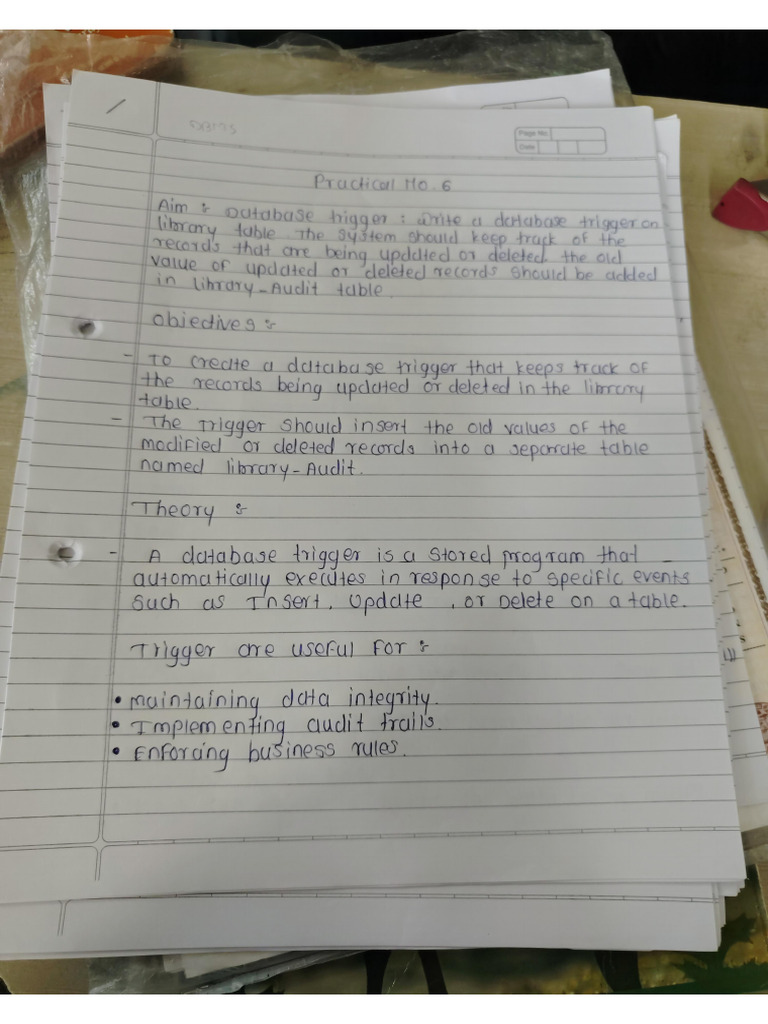 Page No.
Date
Practical No. 6
Aim :- Database trigger : Write a database trigger on
library table. The system should keep track of the
records that are being updated or deleted. the old
value of updated or deleted records should be added
in library-Audit table.
Objectives :-
- To create a database trigger that keeps track of
the records being updated or deleted in the library
table.
- The Trigger should insert the old values of the
modified or deleted records into a separate table
named library-Audit.
Theory :-
- A database trigger is a stored program that
automatically executes in response to specific events
such as Insert, Update , or Delete on a table.
Trigger are useful for :-
• Maintaining data integrity.
• Implementing audit trails.
• Enforcing business rules.